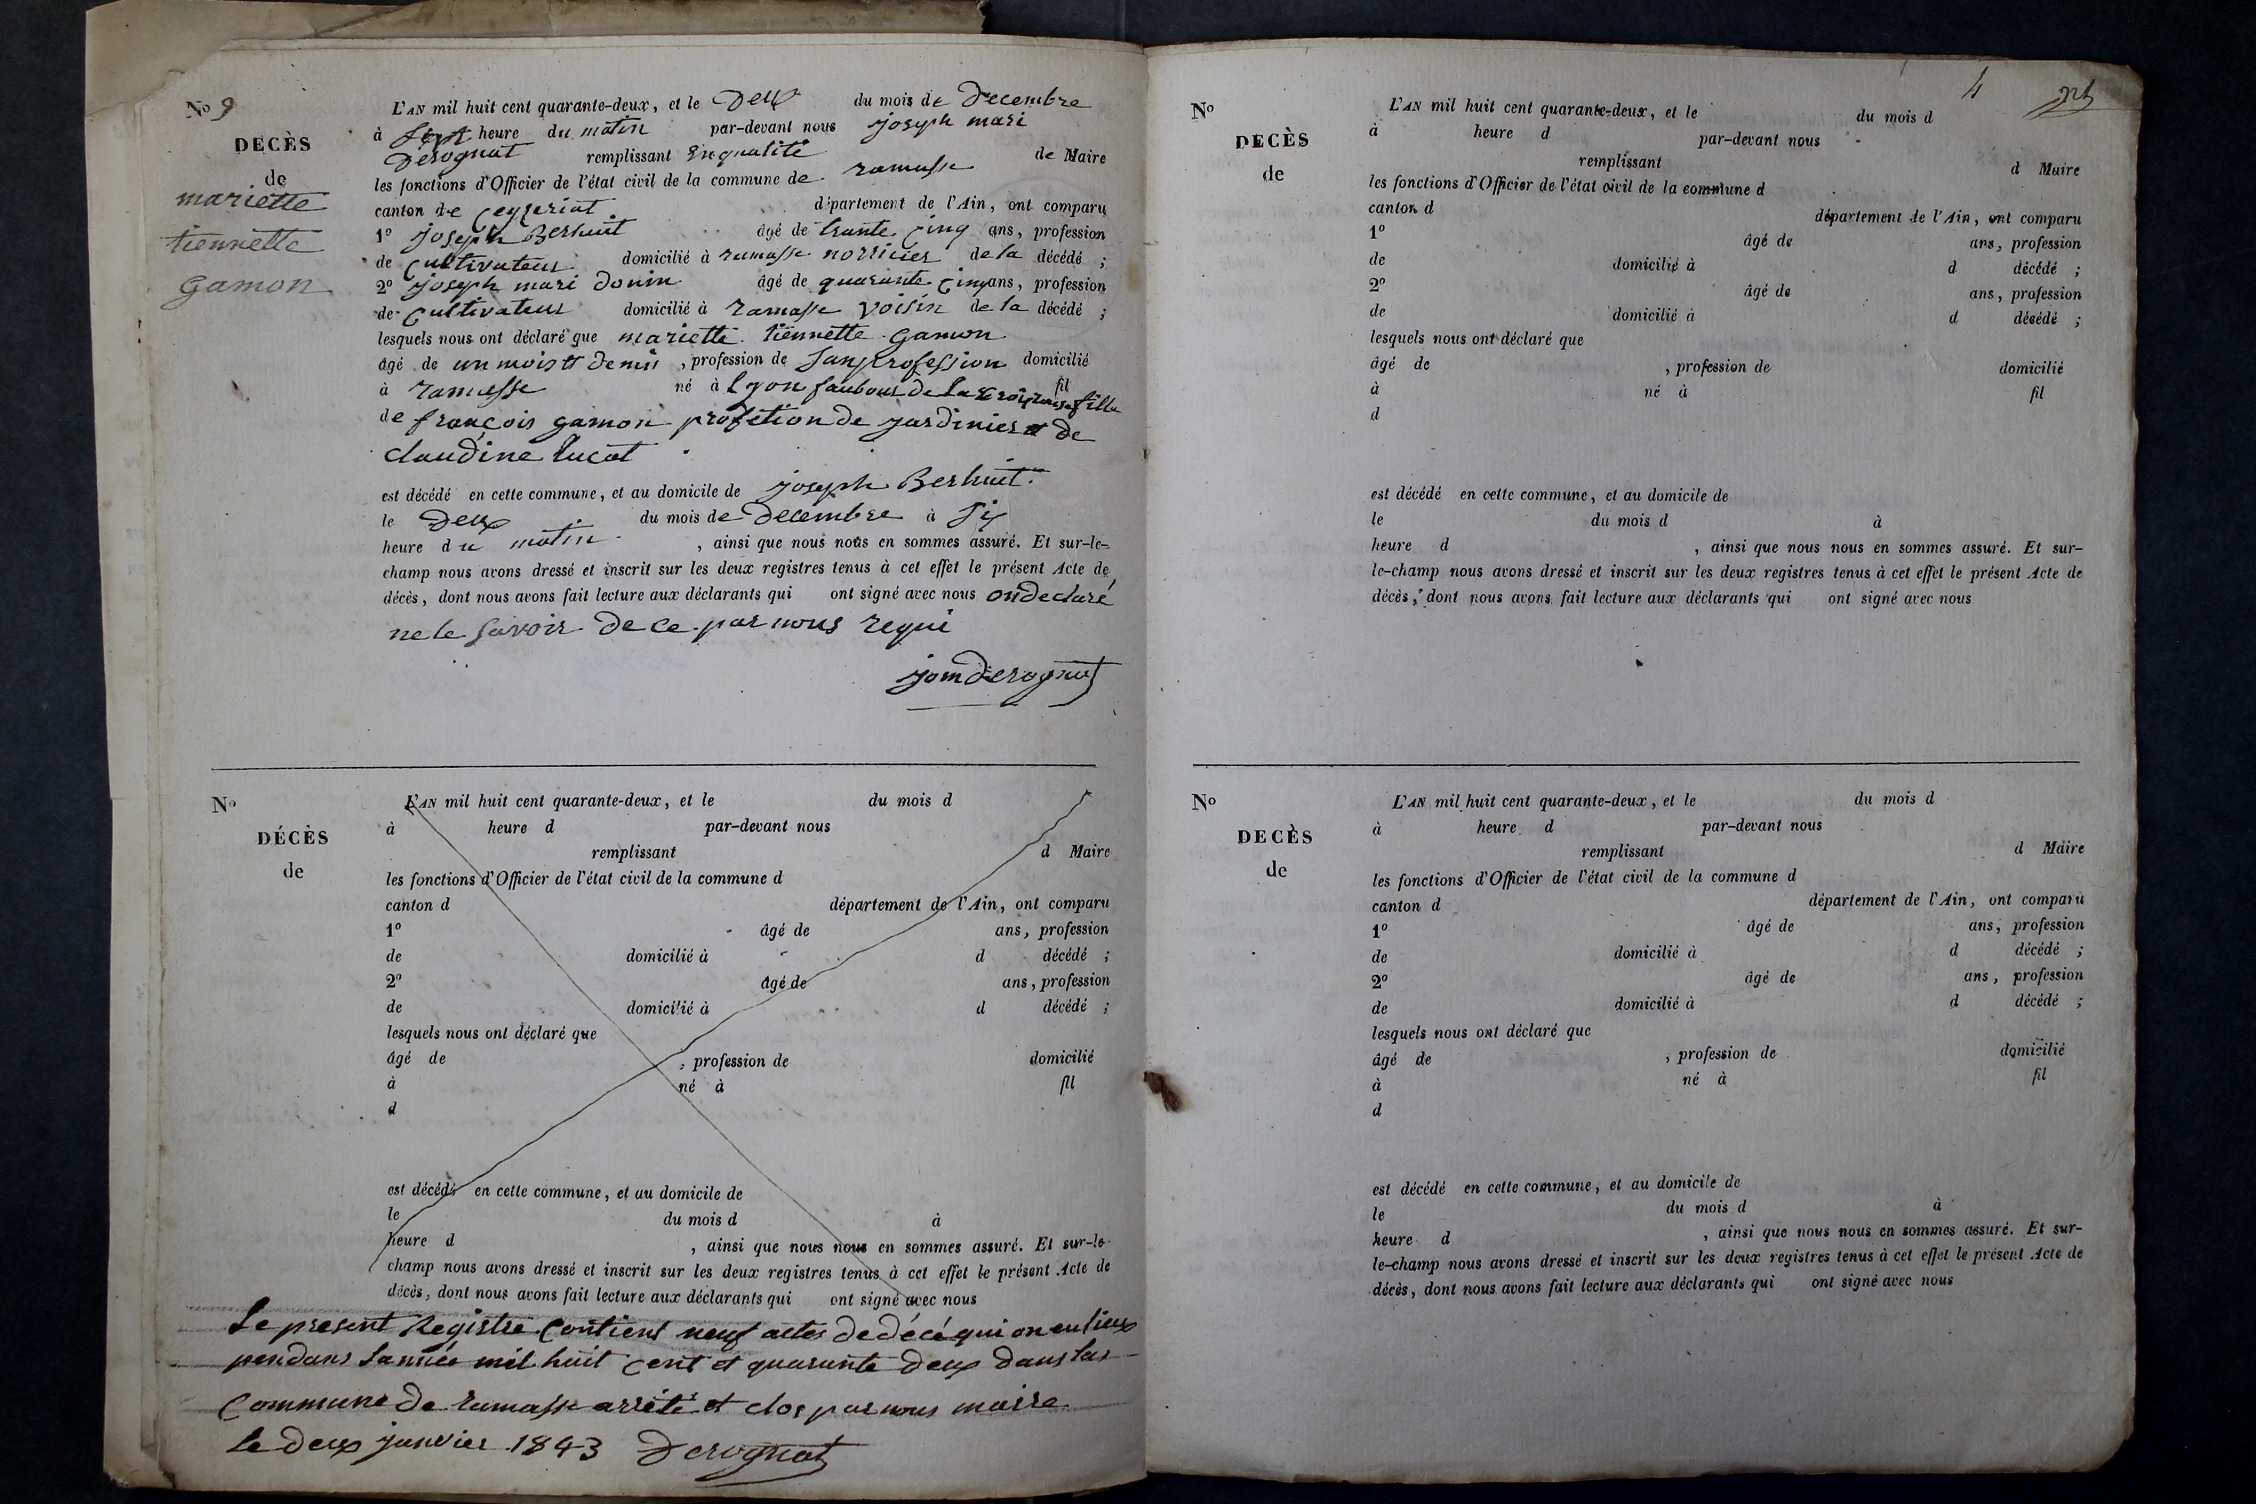 No 9
DECÈS
de
mariette
tiennette
gamon
L'AN mil huit cent quarante-deux, et le Deux du mois de Decembre
à Sept heure du matin par-devant nous joseph mari
Derognat remplissant En qualité de Maire
les fonctions d'Officier de l'état civil de la commune de ramasse
canton de Ceyzeriat département de l'Ain, ont comparu
1º joseph Berhuit âgé de trante cinq ans, profession
de Cultivateur domicilié à ramasse norricier de la décédé ;
2º joseph mari donin âgé de quarante cinq ans, profession
de Cultivateur domicilié à ramasse voisin de la décédé ;
lesquels nous ont déclaré que mariette tiennette gamon
âgé de un mois et demis , profession de Sans profession domicilié
à ramasse né à Lyon faubour de la croix rousse fil fille
de françois gamon profetion de jardinier et de
claudine
est décédé en cette commune, et au domicile de joseph Berhuit
le Deux du mois de Decembre à Six
heure du matin , ainsi que nous nous en sommes assuré. Et sur-le-
champ nous avons dressé et inscrit sur les deux registres tenus à cet effet le présent Acte de
décès, dont nous avons fait lecture aux déclarants qui ont signé avec nous on declaré
ne le Savoir de ce par nous requi
jom Derognat
No
DÉCÈS
de
L'AN mil huit cent quarante-deux, et le du mois d
à heure d par-devant nous
remplissant d Maire
les fonctions d'Officier de l'état civil de la commune d
canton d département de l'Ain, ont comparu
1º âgé de ans, profession
de domicilié à d décédé ;
2º âgé de ans, profession
de domicilié à d décédé ;
lesquels nous ont déclaré que
âgé de , profession de domicilié
à né à fil
d
est décédé en cette commune, et au domicile de
le du mois d à
heure d , ainsi que nous nous en sommes assuré. Et sur-le-
champ nous avons dressé et inscrit sur les deux registres tenus à cet effet le présent Acte de
décès, dont nous avons fait lecture aux déclarants qui ont signé avec nous
Le present Registre Contient neuf actes de décé qui on eu lieux
pendans Lannée mil huit cent et quarante deux dans las
Commune de ramasse arrêté et clos par nous maire
le deux janvier 1843 Derognat
4
No
DECÈS
de
L'AN mil huit cent quarante-deux, et le du mois d
à heure d par-devant nous
remplissant d Maire
les fonctions d'Officier de l'état civil de la commune d
canton d département de l'Ain, ont comparu
1º âgé de ans, profession
de domicilié à d décédé ;
2º âgé de ans, profession
de domicilié à d décédé ;
lesquels nous ont déclaré que
âgé de , profession de domicilié
à né à fil
d
est décédé en cette commune, et au domicile de
le du mois d à
heure d , ainsi que nous nous en sommes assuré. Et sur-
le-champ nous avons dressé et inscrit sur les deux registres tenus à cet effet le présent Acte de
décès, dont nous avons fait lecture aux déclarants qui ont signé avec nous
No
DECÈS
de
L'AN mil huit cent quarante-deux, et le du mois d
à heure d par-devant nous
remplissant d Maire
les fonctions d'Officier de l'état civil de la commune d
canton d département de l'Ain, ont comparu
1º âgé de ans, profession
de domicilié à d décédé ;
2º âgé de ans, profession
de domicilié à d décédé ;
lesquels nous ont déclaré que
âgé de , profession de domicilié
à né à fil
d
est décédé en cette commune, et au domicile de
le du mois d à
heure d , ainsi que nous nous en sommes assuré. Et sur-
le-champ nous avons dressé et inscrit sur les deux registres tenus à cet effet le présent Acte de
décès, dont nous avons fait lecture aux déclarants qui ont signé avec nous